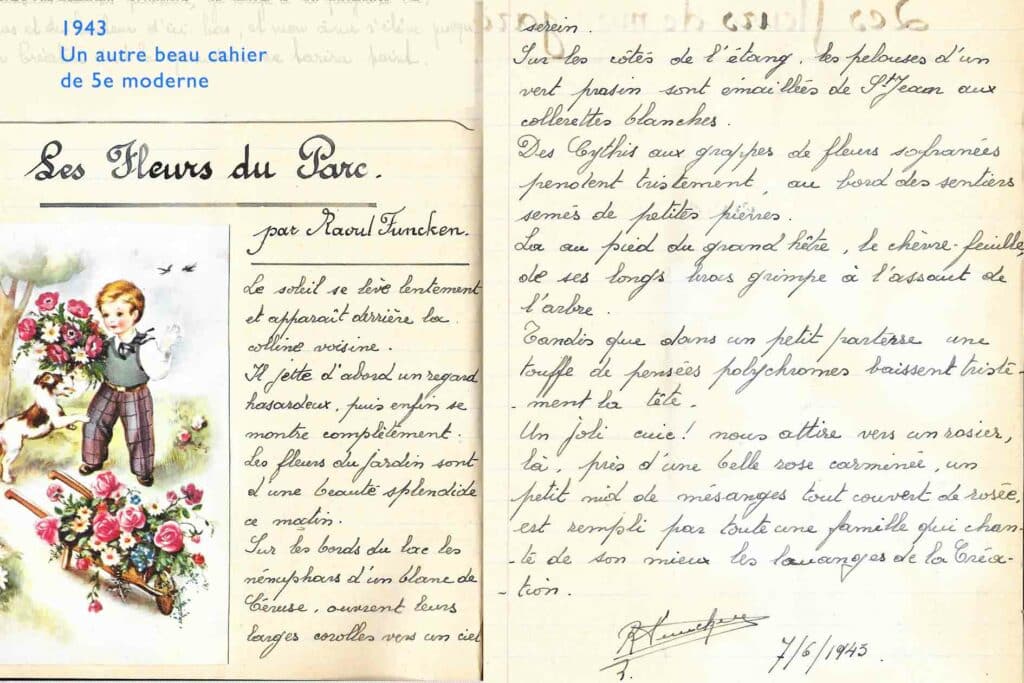 1943
Un autre beau cahier
de 5e moderne
Les Fleurs du Parc.
par Raoul Funcken.
Le soleil se lève lentement
et apparaît derrière la
colline voisine.
Il jette d'abord un regard
hasardeux, puis enfin se
montre complètement.
Les fleurs du jardin sont
d'une beauté splendide
ce matin.
Sur les bords du lac les
nénuphars d'un blanc de
Céruse, ouvrent leurs
larges corolles vers un ciel
serein.
Sur les côtés de l'étang, les pelouses d'un
vert prasin sont émaillées de St Jean aux
collerettes blanches.
Des Cythis aux grappes de fleurs safranées
pendent tristement, au bord des sentiers
semés de petites pierres.
La au pied du grand hêtre, le chèvre-feuille,
de ses longs bras grimpe à l'assaut de
l'arbre.
Tandis que dans un petit parterre une
touffe de pensées polychromes baissent triste-
-ment la tête.
Un joli cuic! nous attire vers un rosier,
là, près d'une belle rose carminée, un
petit nid de mésanges tout couvert de rosée,
est rempli par toute une famille qui chan-
-te de son mieux les louanges de la Créa-
-tion.
R Funcken
7/6/1943.